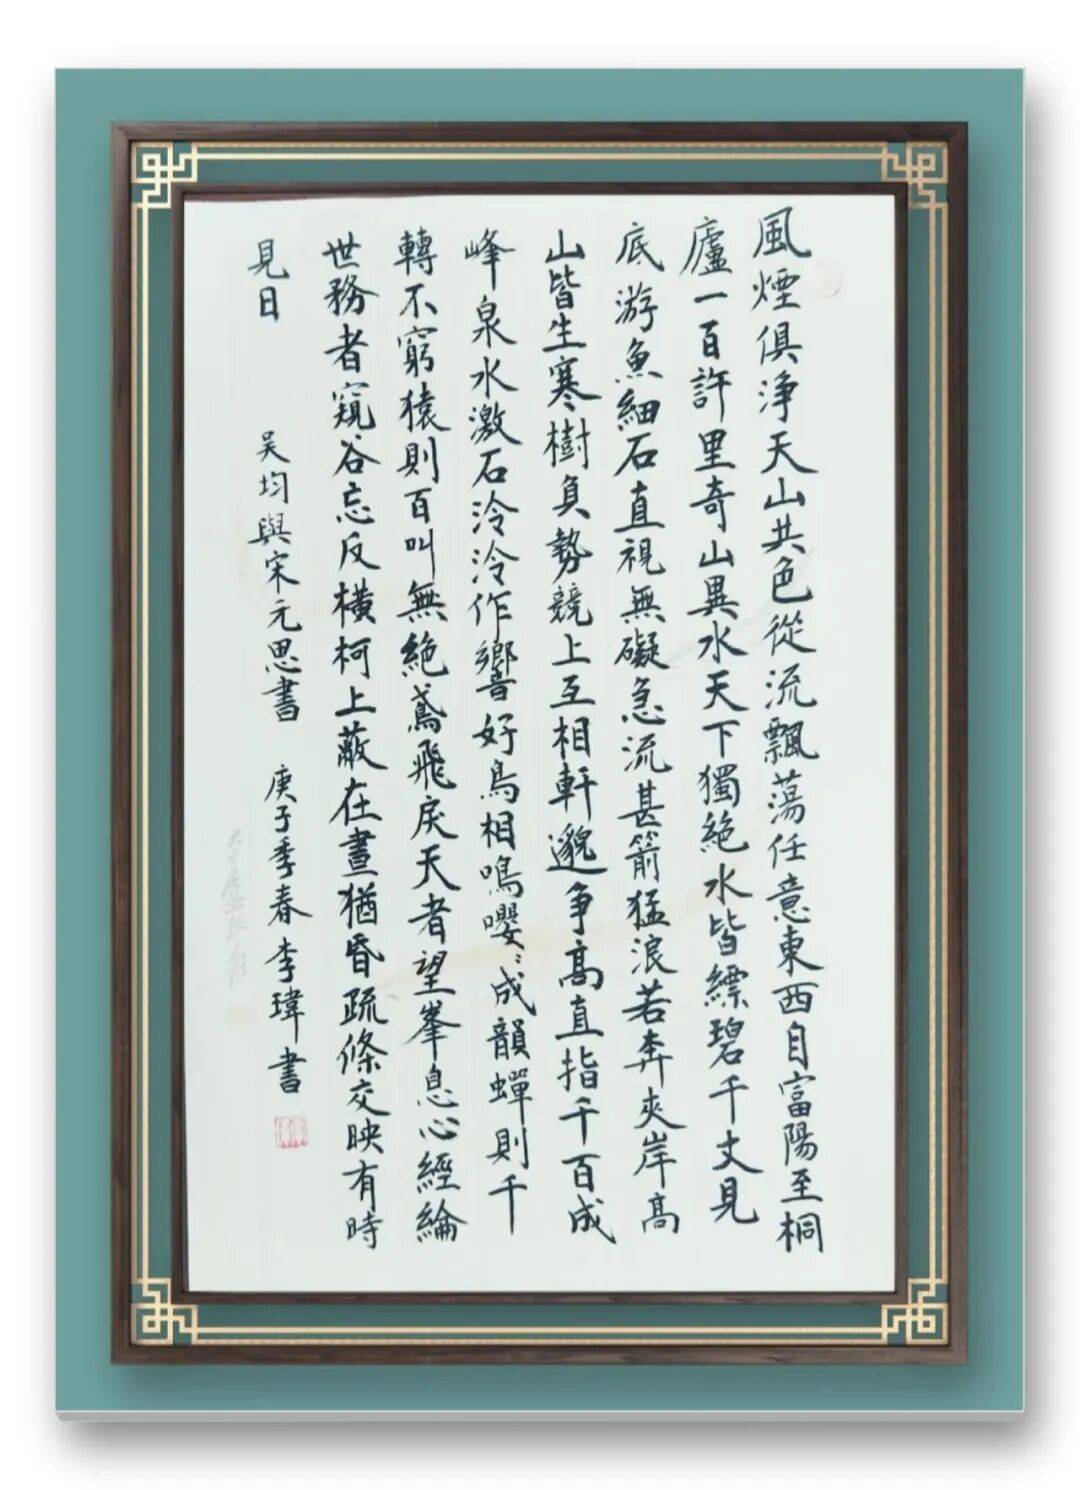 風煙俱淨天山共色從流飄蕩任意東西自富陽至桐
廬一百許里奇山異水天下獨絕水皆縹碧千丈見
底游魚細石直視無礙急流甚箭猛浪若奔夾岸高
山皆生寒樹負勢競上互相軒邈爭高直指千百成
峰泉水激石泠泠作響好鳥相鳴嚶〻成韻蟬則千
轉不窮猿則百叫無絕鳶飛戾天者望峯息心經綸
世務者窺谷忘反橫柯上蔽在晝猶昏疏條交映有時
見日
吴均與宋元思書 庚子季春李瑋書